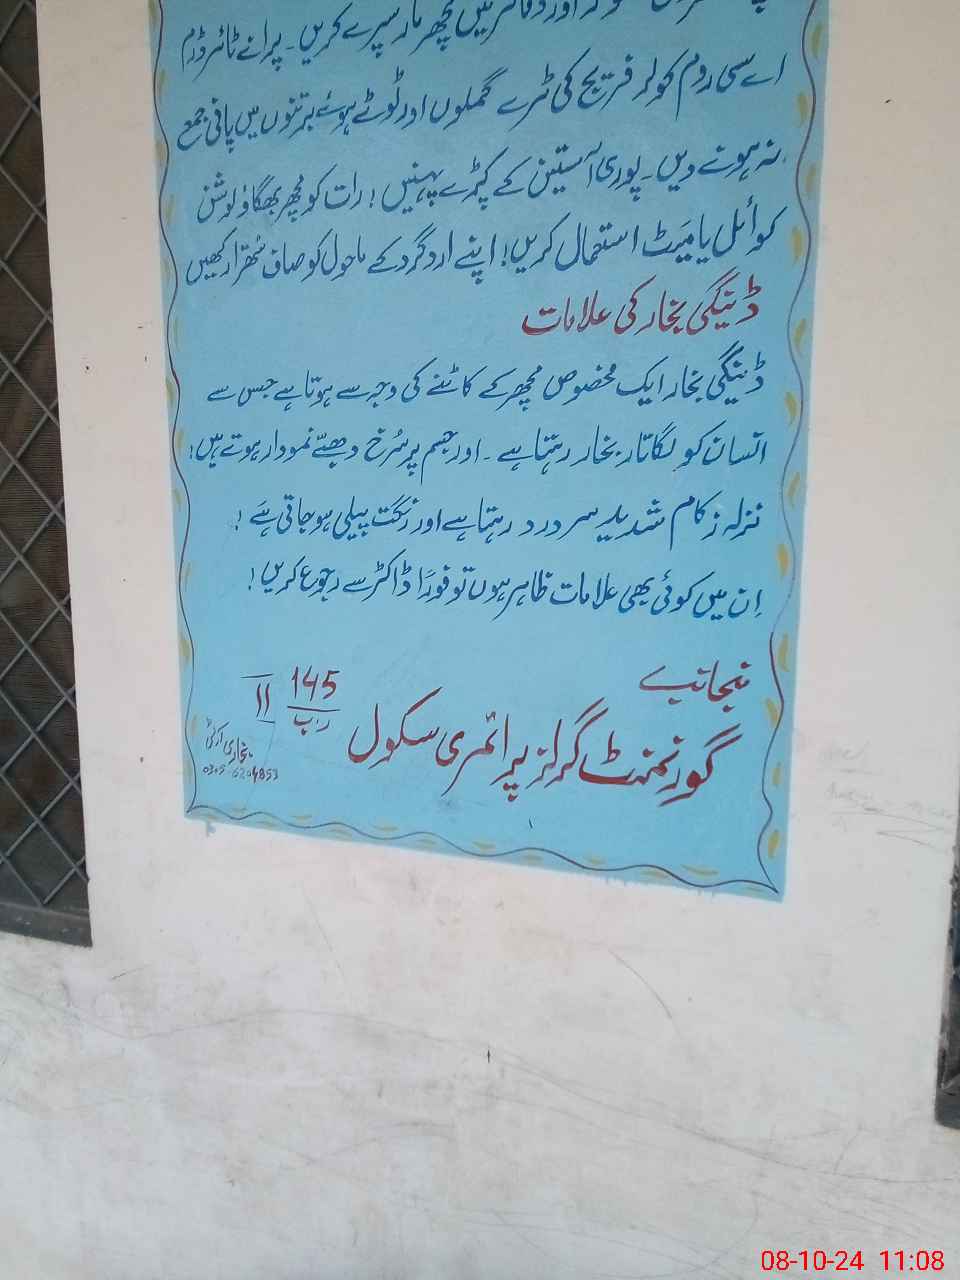 اور دفاتر میں مچھر مار سپرے کریں۔ پرانے ٹائر ڈرم
اے سی روم کولر فریج کی ٹرے گملوں اور ٹوٹے ہوئے برتنوں میں پانی جمع
نہ ہونے دیں۔ پوری آستین کے کپڑے پہنیں! رات کو مچھر بھگاؤ لوشن
کوائل یا میٹ استعمال کریں! اپنے اردگرد کے ماحول کو صاف ستھرا رکھیں
ڈینگی بخار کی علامات
ڈینگی بخار ایک مخصوص مچھر کے کاٹنے کی وجہ سے ہوتا ہے جس سے
انسان کو لگاتار بخار رہتا ہے۔ اور جسم پر سُرخ دھبّے نمودار ہوتے ہیں!
نزلہ زکام شدید سر درد رہتا ہے اور رنگت پیلی ہو جاتی ہے!
اِن میں کوئی بھی علامات ظاہر ہوں تو فوراً ڈاکٹر سے رجوع کریں!
منجانب
گورنمنٹ گرلز پرائمری سکول 145 ر۔ب II
بخاری آرٹ
08-10-24 11:08